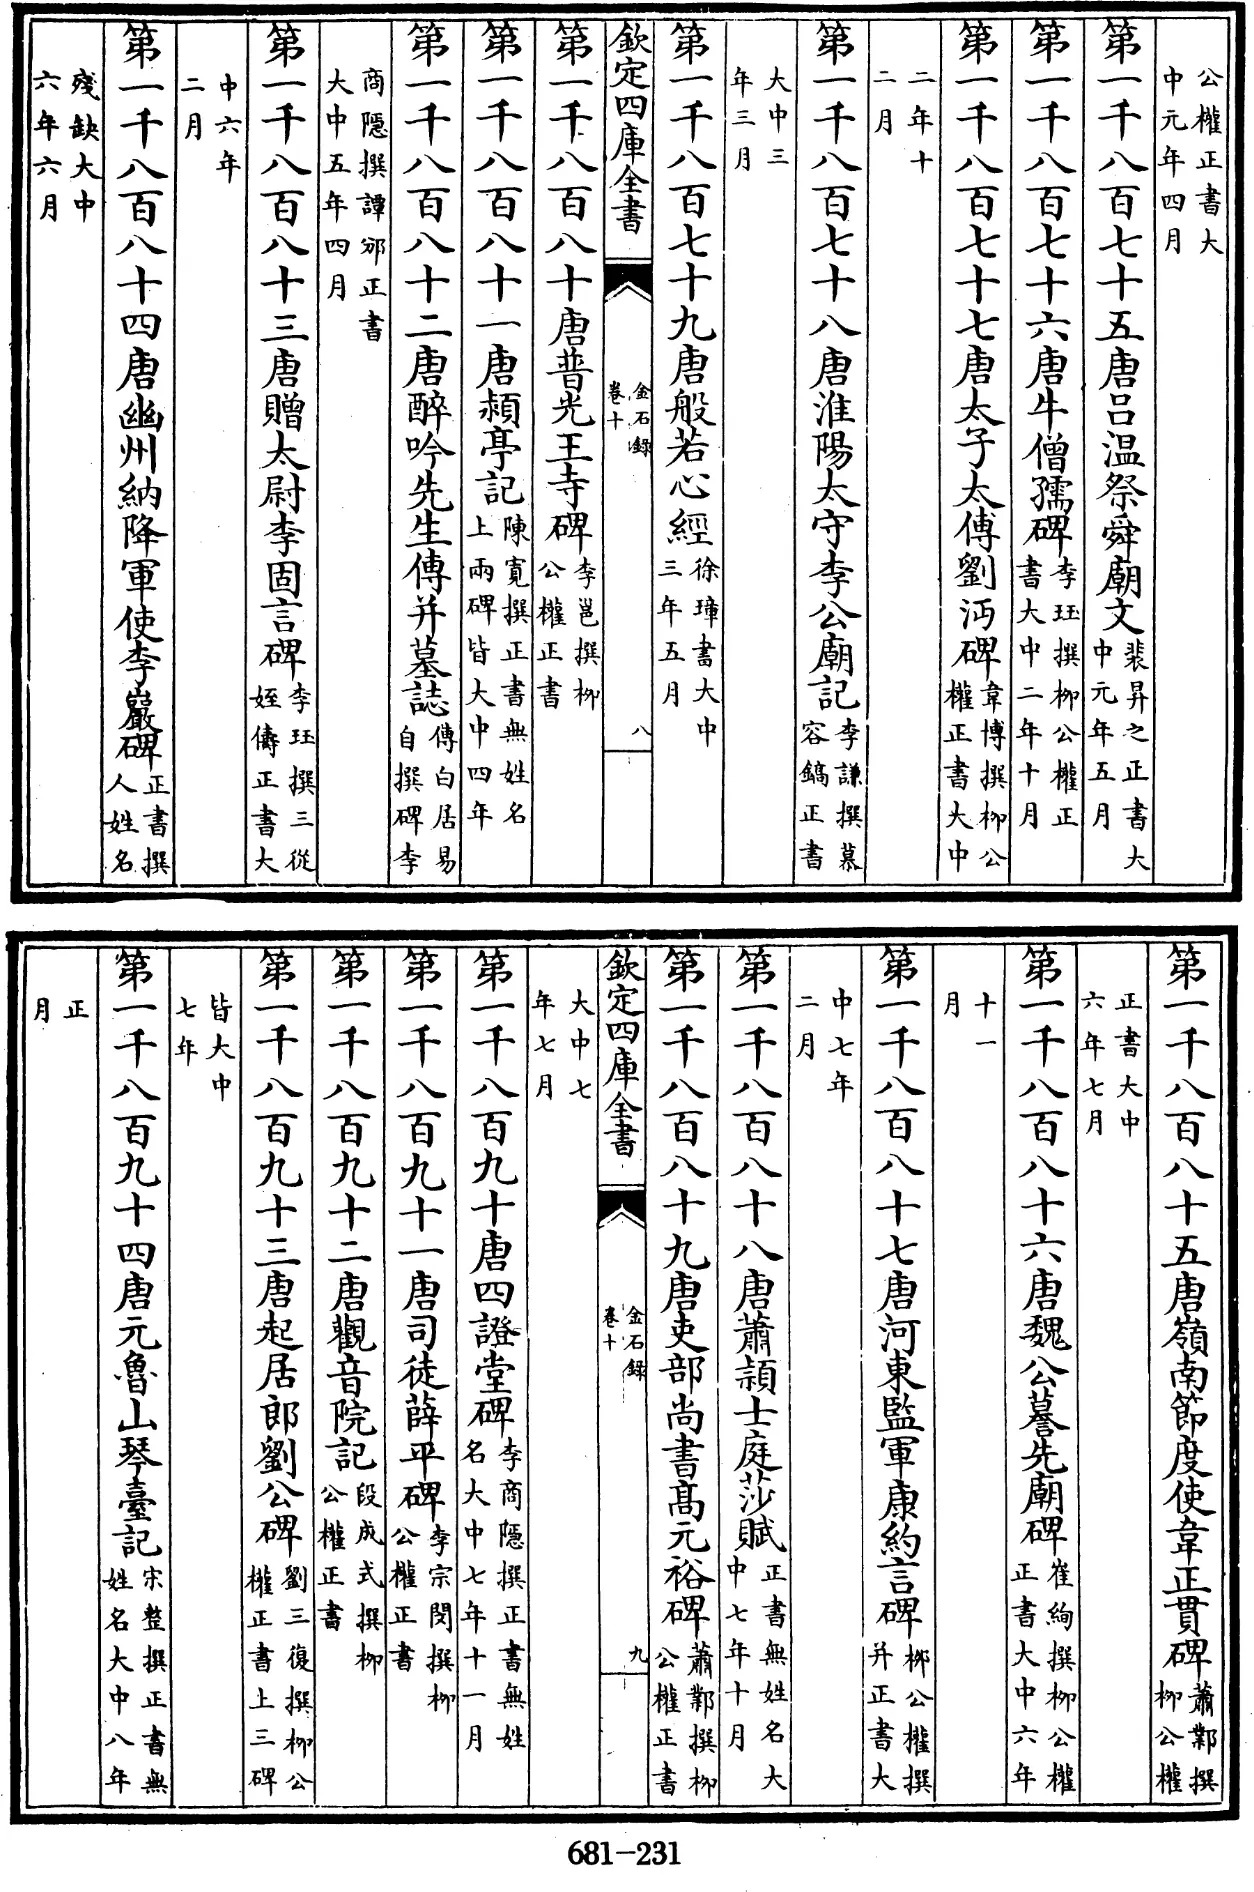 公權正書大
中元年四月
第一千八百七十五唐呂温祭舜廟文裴昇之正書大
中元年五月
第一千八百七十六唐牛僧孺碑李珏撰柳公權正
書大中二年十月
第一千八百七十七唐太子太傅劉沔碑韋博撰柳公
權正書大中
二年十
二月
第一千八百七十八唐淮陽太守李公廟記李謙撰慕
容鎬正書
大中三
年三月
第一千八百七十九唐般若心經徐璋書大中
三年五月
欽定四庫全書
金石錄
卷十
八
第一千八百八十唐普光王寺碑李邕撰柳
公權正書
第一千八百八十一唐頳亭記陳寛撰正書無姓名
上兩碑皆大中四年
第一千八百八十二唐醉吟先生傳并墓誌傳白居易
自撰碑李
商隱撰譚邠正書
大中五年四月
第一千八百八十三唐贈太尉李固言碑李珏撰三從
姪儔正書大
中六年
二月
第一千八百八十四唐幽州納降軍使李巖碑正書撰
人姓名
殘缺大中
六年六月
第一千八百八十五唐嶺南節度使韋正貫碑蕭鄴撰
柳公權
正書大中
六年七月
第一千八百八十六唐魏公謩先廟碑崔絢撰柳公權
正書大中六年
十一
月
第一千八百八十七唐河東監軍康約言碑柳公權撰
并正書大
中七年
二月
第一千八百八十八唐蕭頴士庭莎賦正書無姓名大
中七年十月
第一千八百八十九唐吏部尚書髙元裕碑蕭鄴撰柳
公權正書
欽定四庫全書
金石錄
卷十
九
大中七
年七月
第一千八百九十唐四證堂碑李商隱撰正書無姓
名大中七年十一月
第一千八百九十一唐司徒薛平碑李宗閔撰柳
公權正書
第一千八百九十二唐觀音院記段成式撰柳
公權正書
第一千八百九十三唐起居郎劉公碑劉三復撰柳公
權正書上三碑
皆大中
七年
第一千八百九十四唐元魯山琴臺記宋整撰正書無
姓名大中八年
正
月
681-231